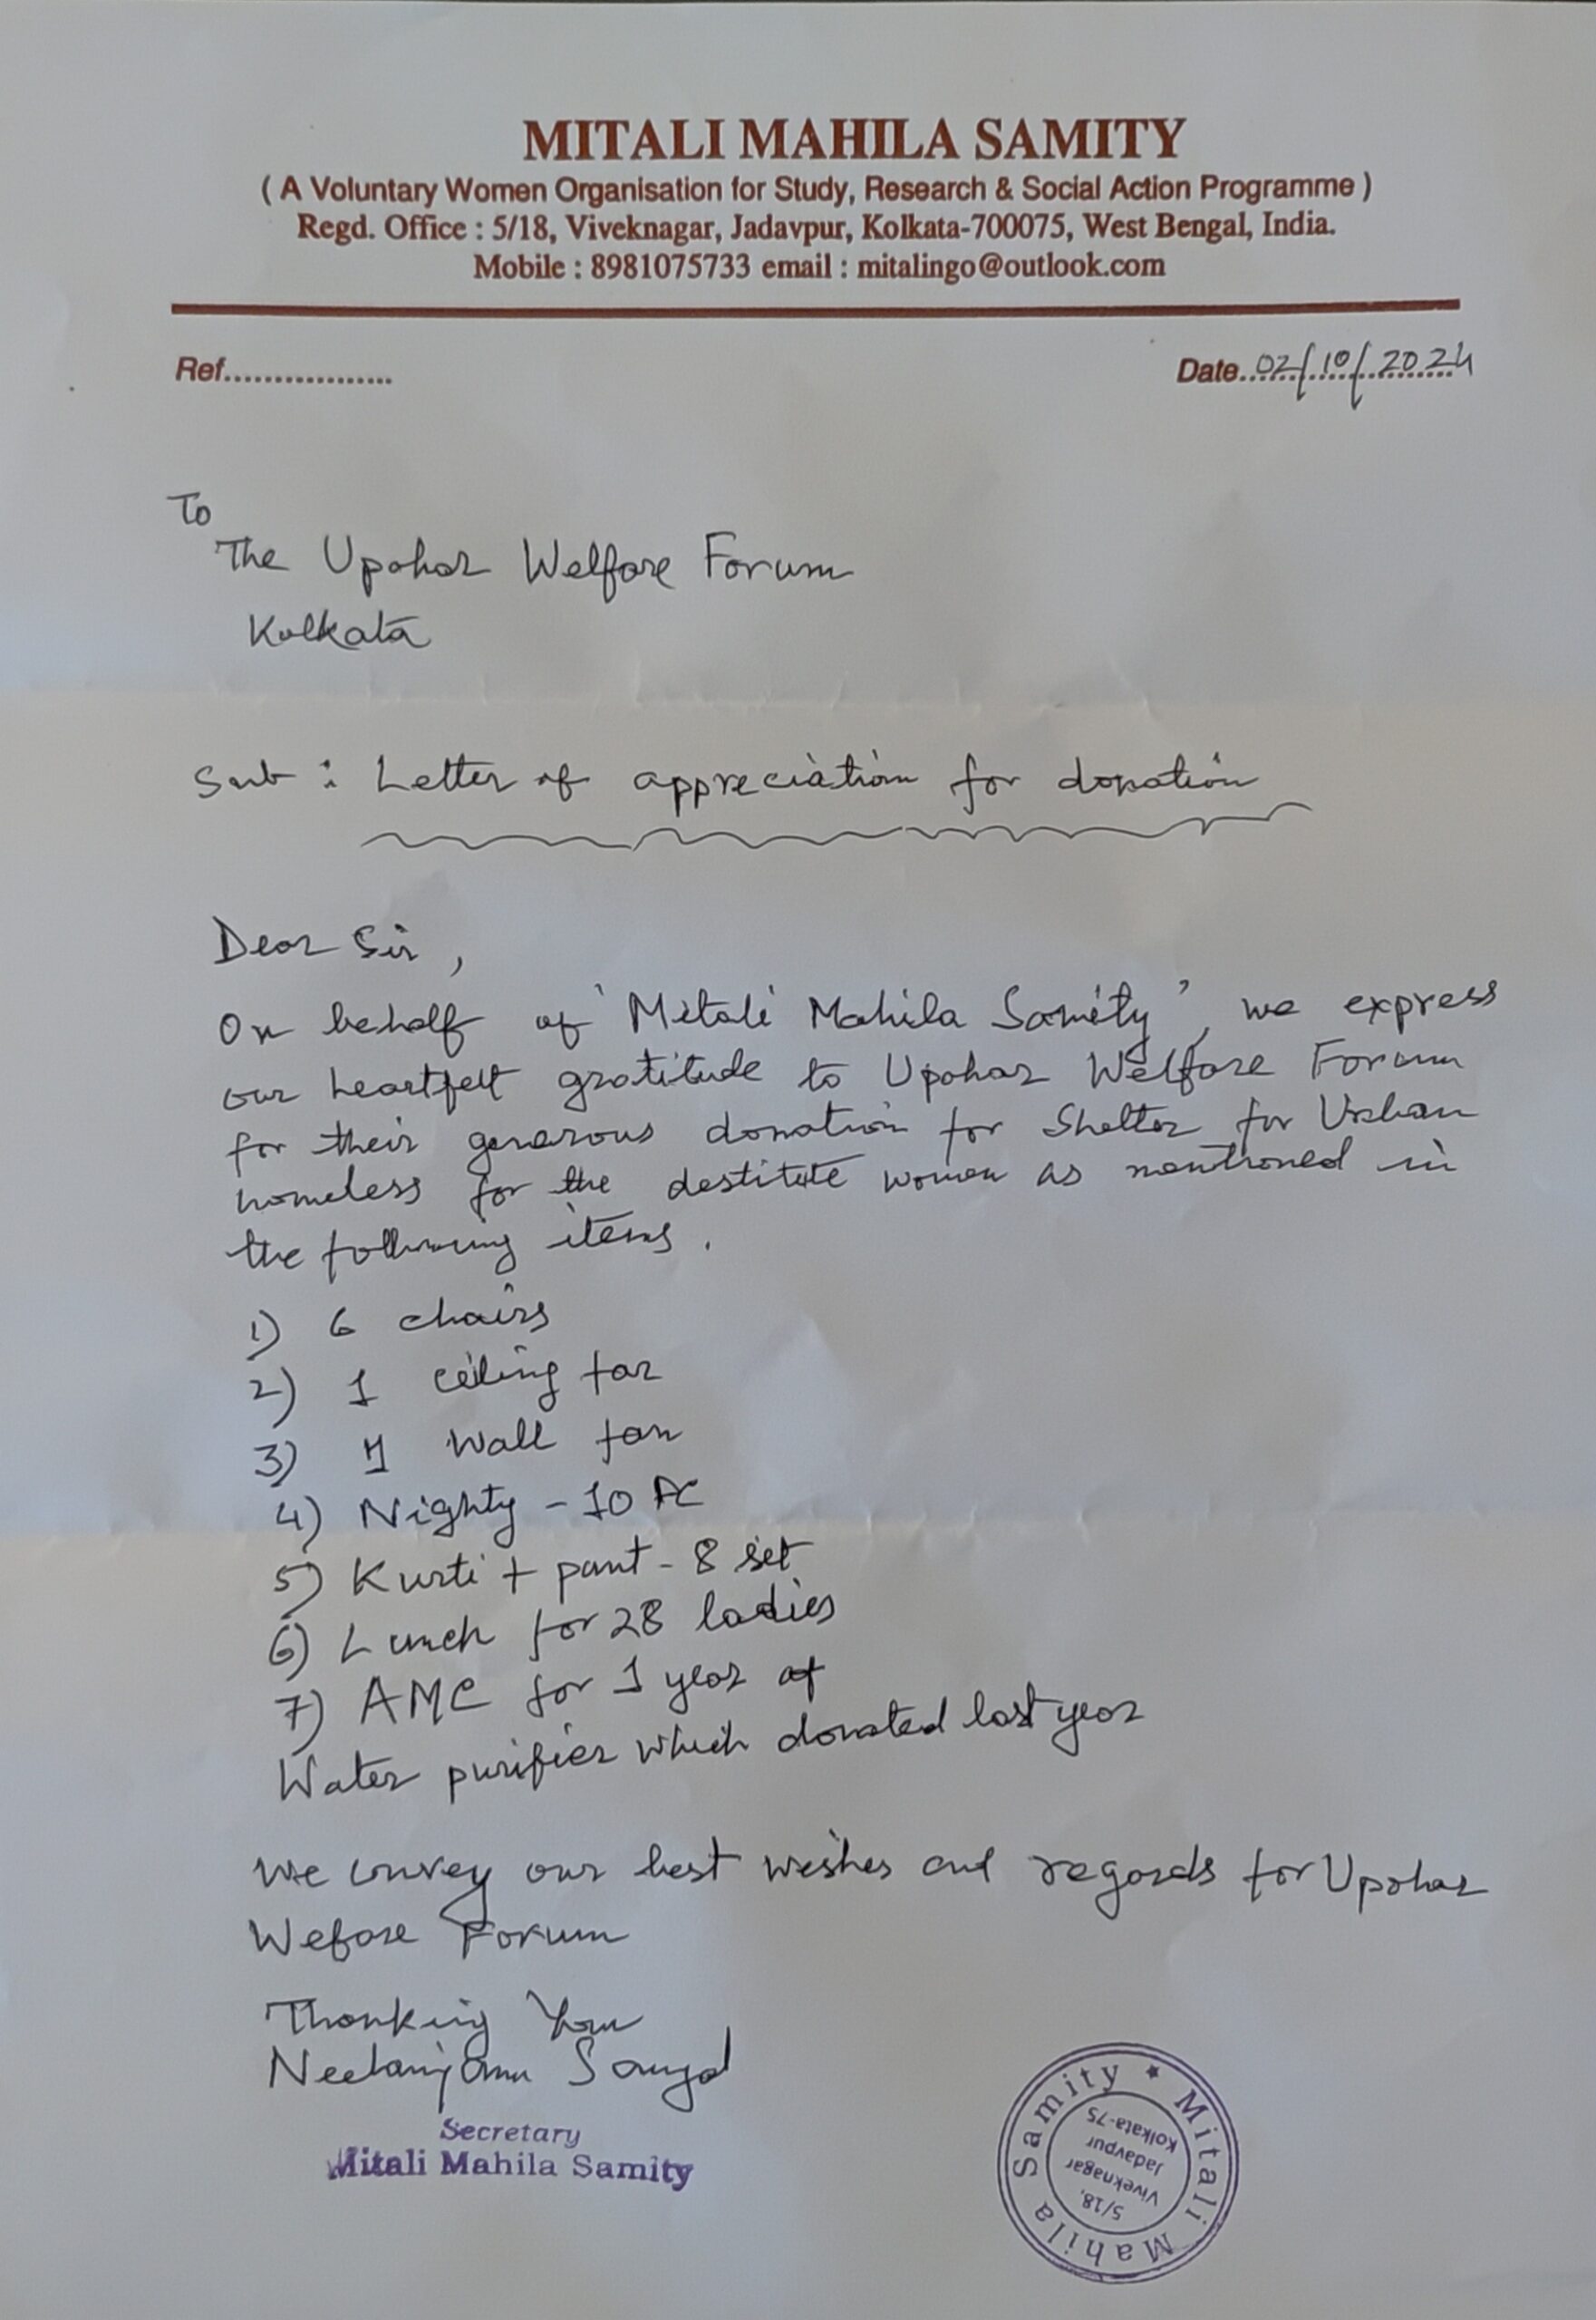 MITALI MAHILA SAMITY
( A Voluntary Women Organisation for Study, Research & Social Action Programme )
Regd. Office : 5/18, Viveknagar, Jadavpur, Kolkata-700075, West Bengal, India.
Mobile : 8981075733 email : mitalingo@outlook.com
Ref.................
Date..02/10/2024
To
The Upohar Welfare Forum
Kolkata
Sub : Letter of appreciation for donation
Dear Sir,
On behalf of 'Mitali Mahila Samity', we express
our heartfelt gratitude to Upohar Welfare Forum
for their generous donation for Shelter for Urban
homeless for the destitute women as mentioned in
the following items.
1) 6 chairs
2) 1 ceiling fan
3) 1 Wall fan
4) Nighty - 10 PC
5) Kurti + pant - 8 set
6) Lunch for 28 ladies
7) AMC for 1 year of
Water purifier which donated last year
We convey our best wishes and regards for Upohar
Wefare Forum
Thanking You
Neelanjana Sanyal
Secretary
Mitali Mahila Samity
Mitali Mahila Samity
5/18,
Viveknagar
Jadavpur
Kolkata-75